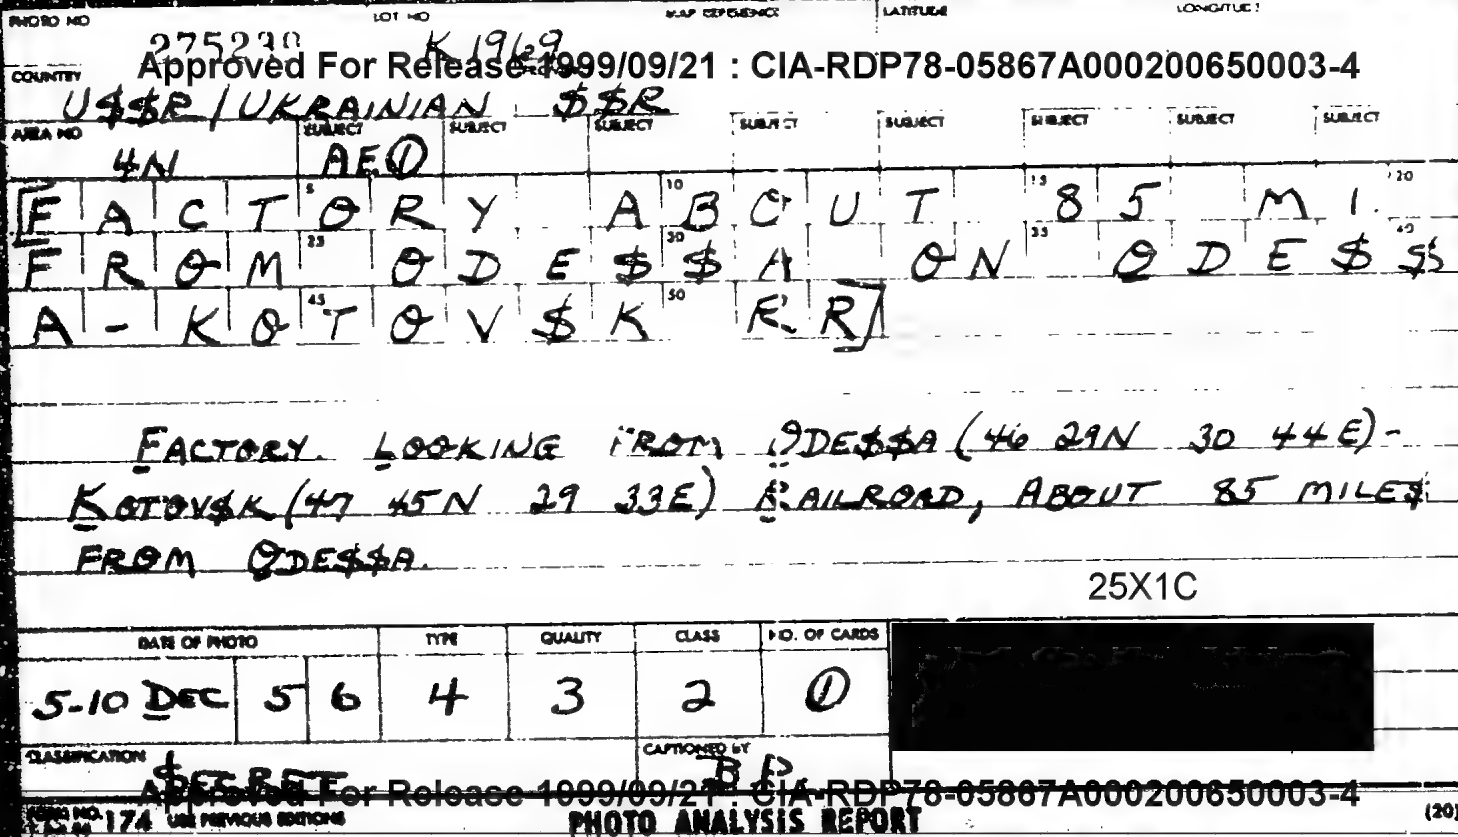 PHOTO NO LOT NO MAP REFERENCE LATITUDE LONGITUDE
275230 K 1969
Approved For Release 1999/09/21 : CIA-RDP78-05867A000200650003-4
COUNTRY
U$$R / UKRAINIAN $$R
AREA NO SUBJECT SUBJECT SUBJECT SUBJECT SUBJECT SUBJECT SUBJECT SUBJECT
4N AE①
5 10 15 20
[FACTORY ABOUT 85 MI.
25 30 35 40
FROM ODE$$A ON ODE$$
45 50
A-KOTOV$K R.R]
FACTORY. LOOKING FROM ODE$$A (46 29N 30 44E)-
KOTOV$K (47 45N 29 33E) RAILROAD, ABOUT 85 MILE$
FROM ODE$$A.
25X1C
DATE OF PHOTO TYPE QUALITY CLASS NO. OF CARDS
5-10 DEC 5 6 4 3 2 ①
CLASSIFICATION CAPTIONED BY
$ECRET
Approved For Release 1999/09/21 : CIA-RDP78-05867A000200650003-4
FORM NO. 174 USE PREVIOUS EDITIONS PHOTO ANALYSIS REPORT (20)